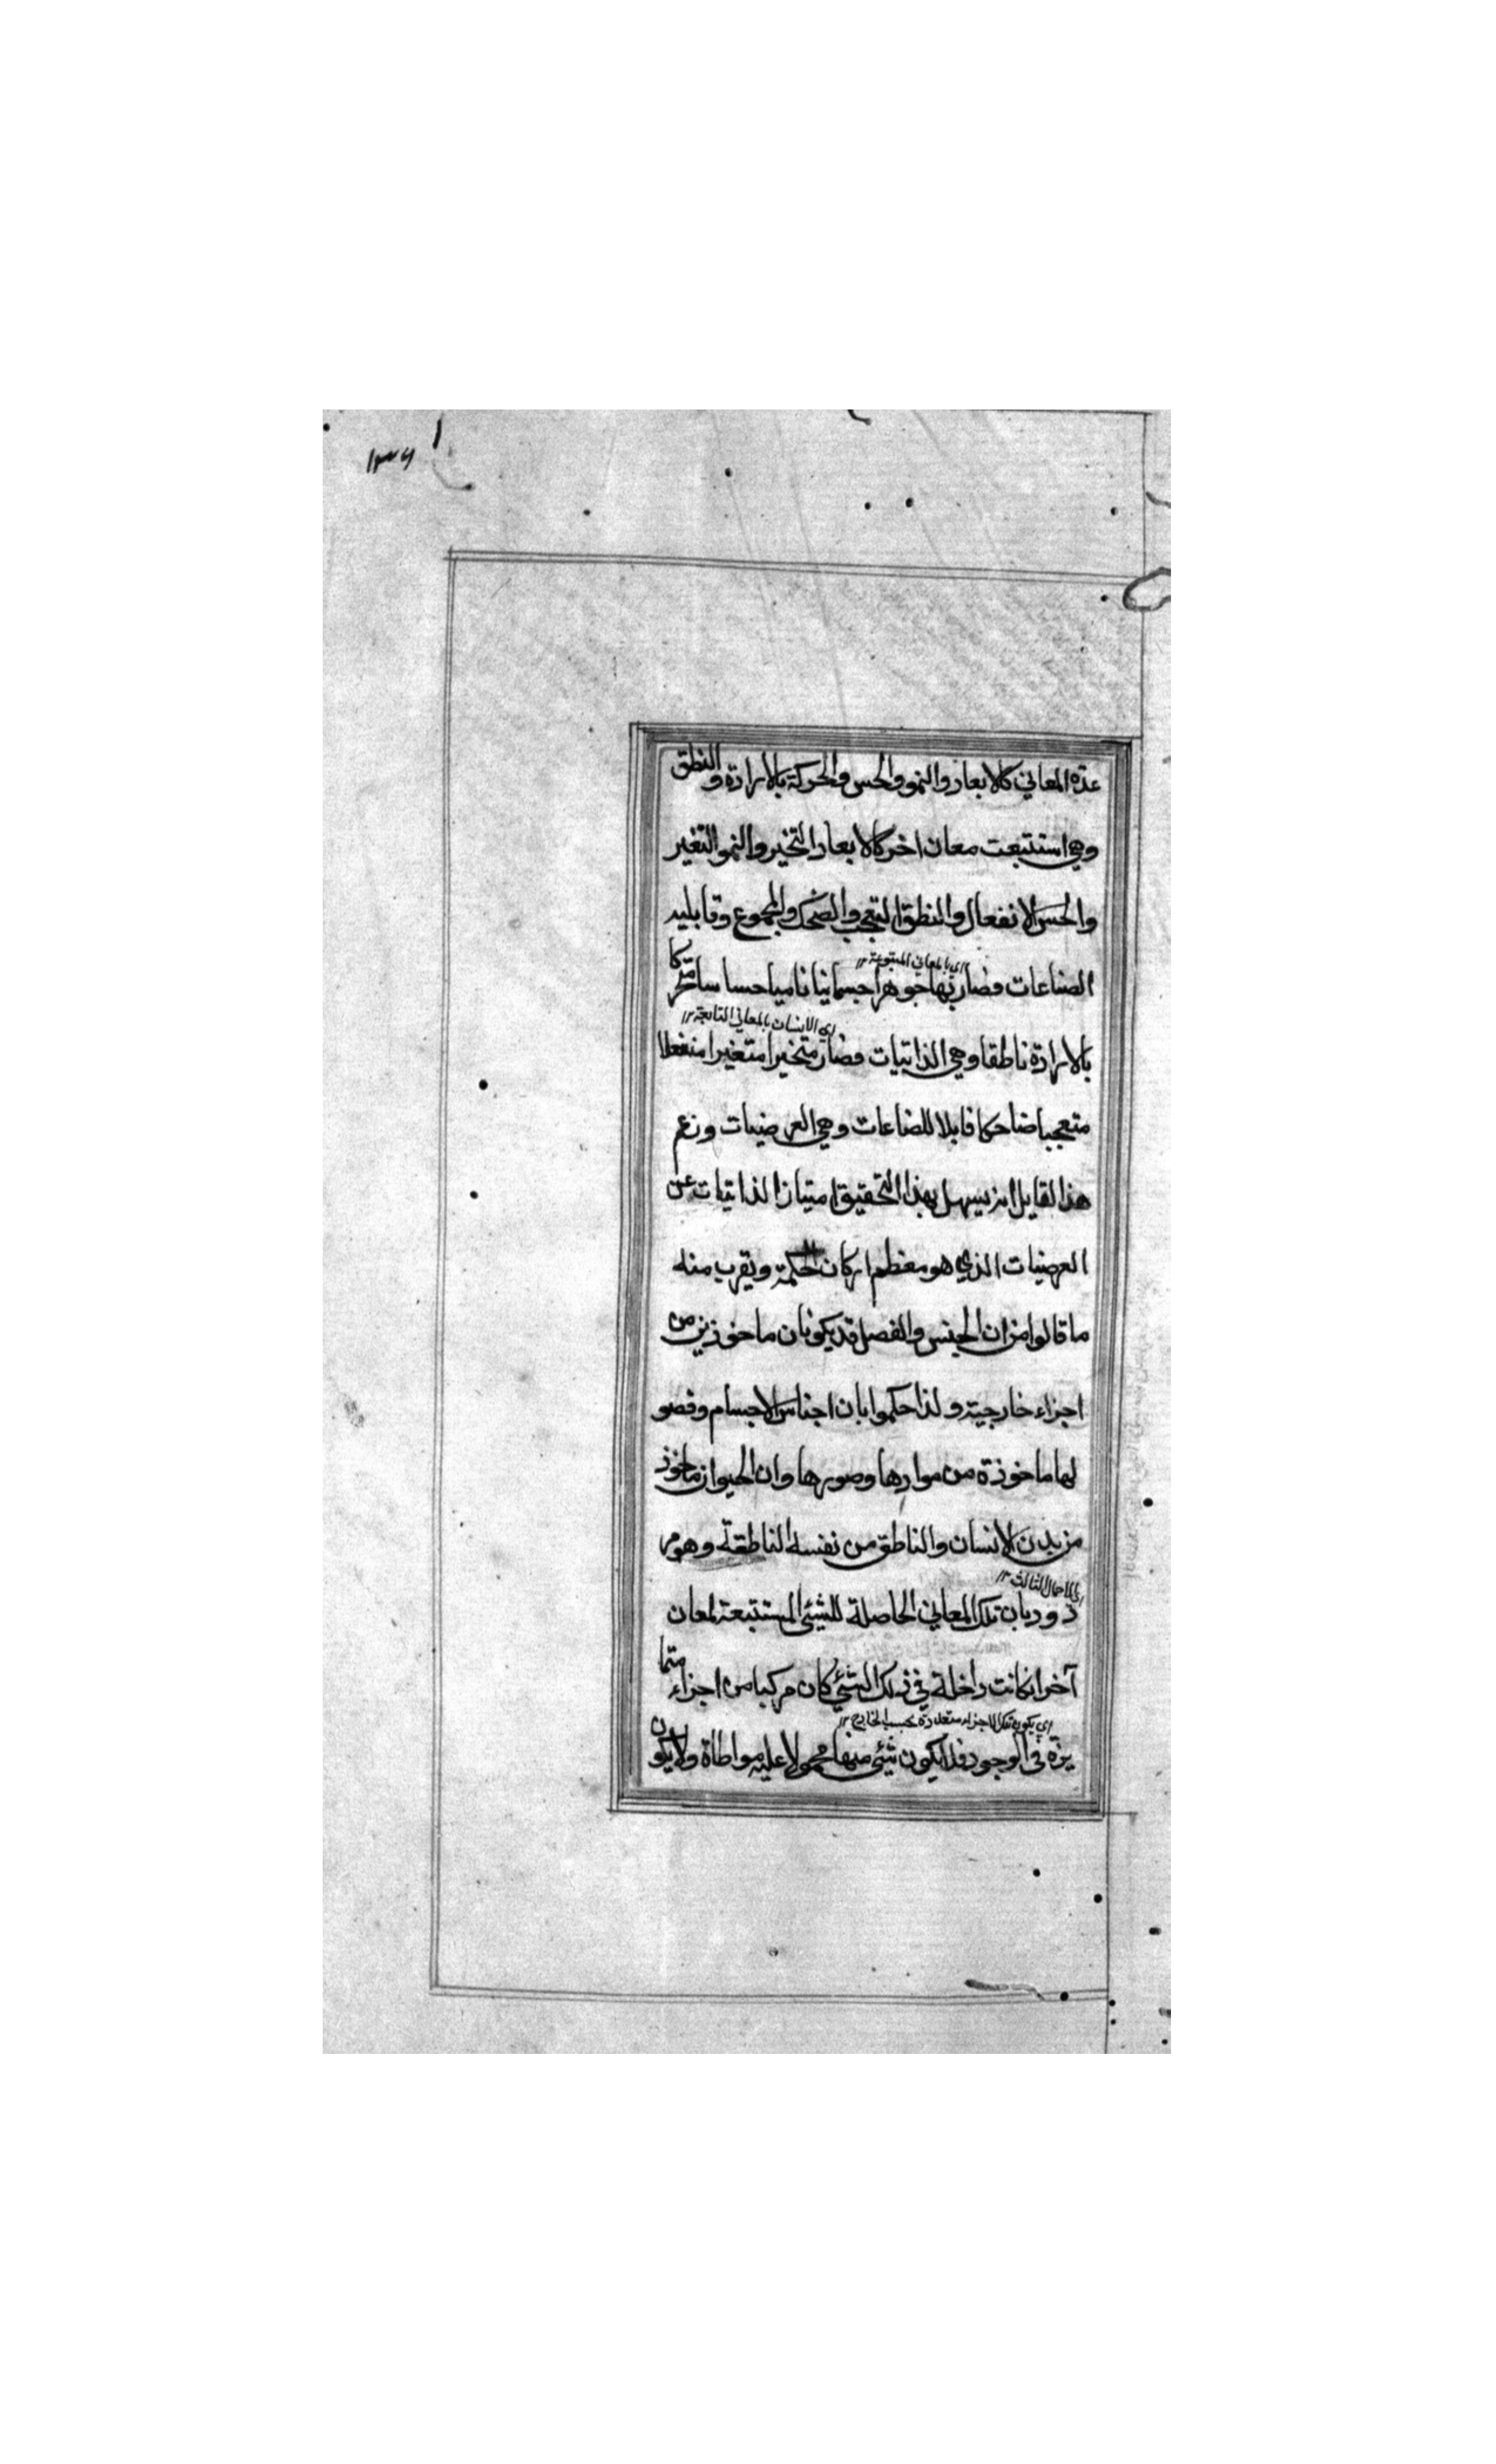 ١٣٦
عدة المعاني كالابعاد والنمو والحس والحركة بالارادة والنطق
وهي استتبعت معان اخر كالابعاد التخير والنمو التغير
والحس الانفعال والنطق التعجب والضحك والمجموع وقابليه
اي بالمعاني المتبوعة ١٢
الصناعات فصار بها جوهرا جسمانيا ناميا حساسا متحركا
اي الانسان بالمعاني التابعة ١٢
بالارادة ناطقا وهي الذاتيات فصار متخيرا متغيرا منفعلا
متعجبا ضاحكا قابلا للصناعات وهي العرضيات وزعم
هذا لقايل انه يسهل بهذا التحقيق امتياز الذاتيات عن
العرضيات الذي هو معظم اركان الحكمة ويقرب منه
ما قالوا من ان الجنس والفصل قد يكونان ماخوذين من
اجزاء خارجية ولذا حكموا بان اجناس الاجسام وفصو
لها ماخوذة من موادها وصورها وان الحيوان ماخوذ
من بدن الانسان والناطق من نفسه الناطقة وهو مر
الثالث ١٢
دود بان تلك المعاني الحاصلة للشيئ المستتبعة لمعان
آخر انكانت داخلة في ذلك الشيئ كان مركبا من اجزاء متما
اي يكون تلك الاجزاء متعددة بحسب الخارج ١٢
يزة في الوجود فلا يكون شيئ منها محمولا عليه مواطاة ولا يكون